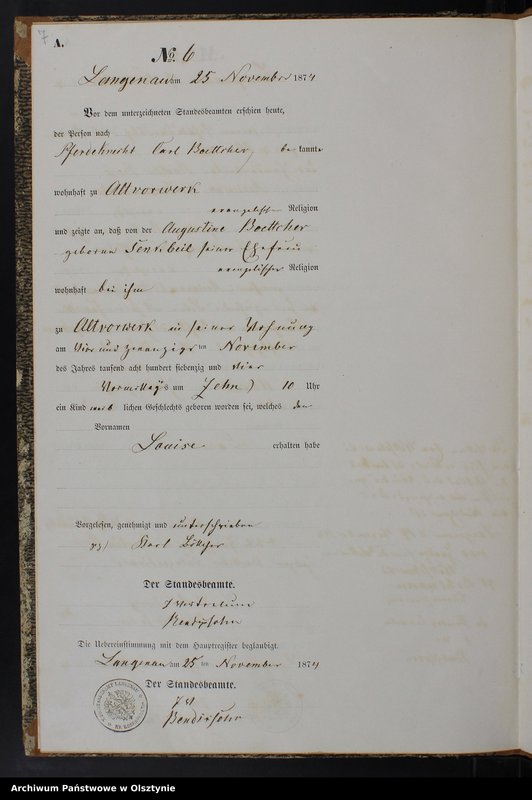 7
A.
No. 6
Langenau am 25 November 1874
Vor dem unterzeichneten Standesbeamten erschien heute,
der Person nach
Pferdeknecht Carl Boettcher, be kannte
wohnhaft zu Altvorwerk
evangelischer Religion
und zeigte an, daß von der Augustine Boettcher
geborne seiner Ehefrau
evangelischer Religion
wohnhaft bei ihm
zu Altvorwerk in seiner Wohnung
am Vier und zwanzigsten November
des Jahres tausend acht hundert siebenzig und vier
Vormittags um Zehn ) 10 Uhr
ein Kind weib lichen Geschlechts geboren worden sei, welches den
Vornamen
Louise erhalten habe
Vorgelesen, genehmigt und unterschrieben
Karl Böttcher
Der Standesbeamte.
Die Uebereinstimmung mit dem Hauptregister beglaubigt.
Langenau am 25 ten November 1874
Der Standesbeamte.
Archiwum Państwowe w Olsztynie